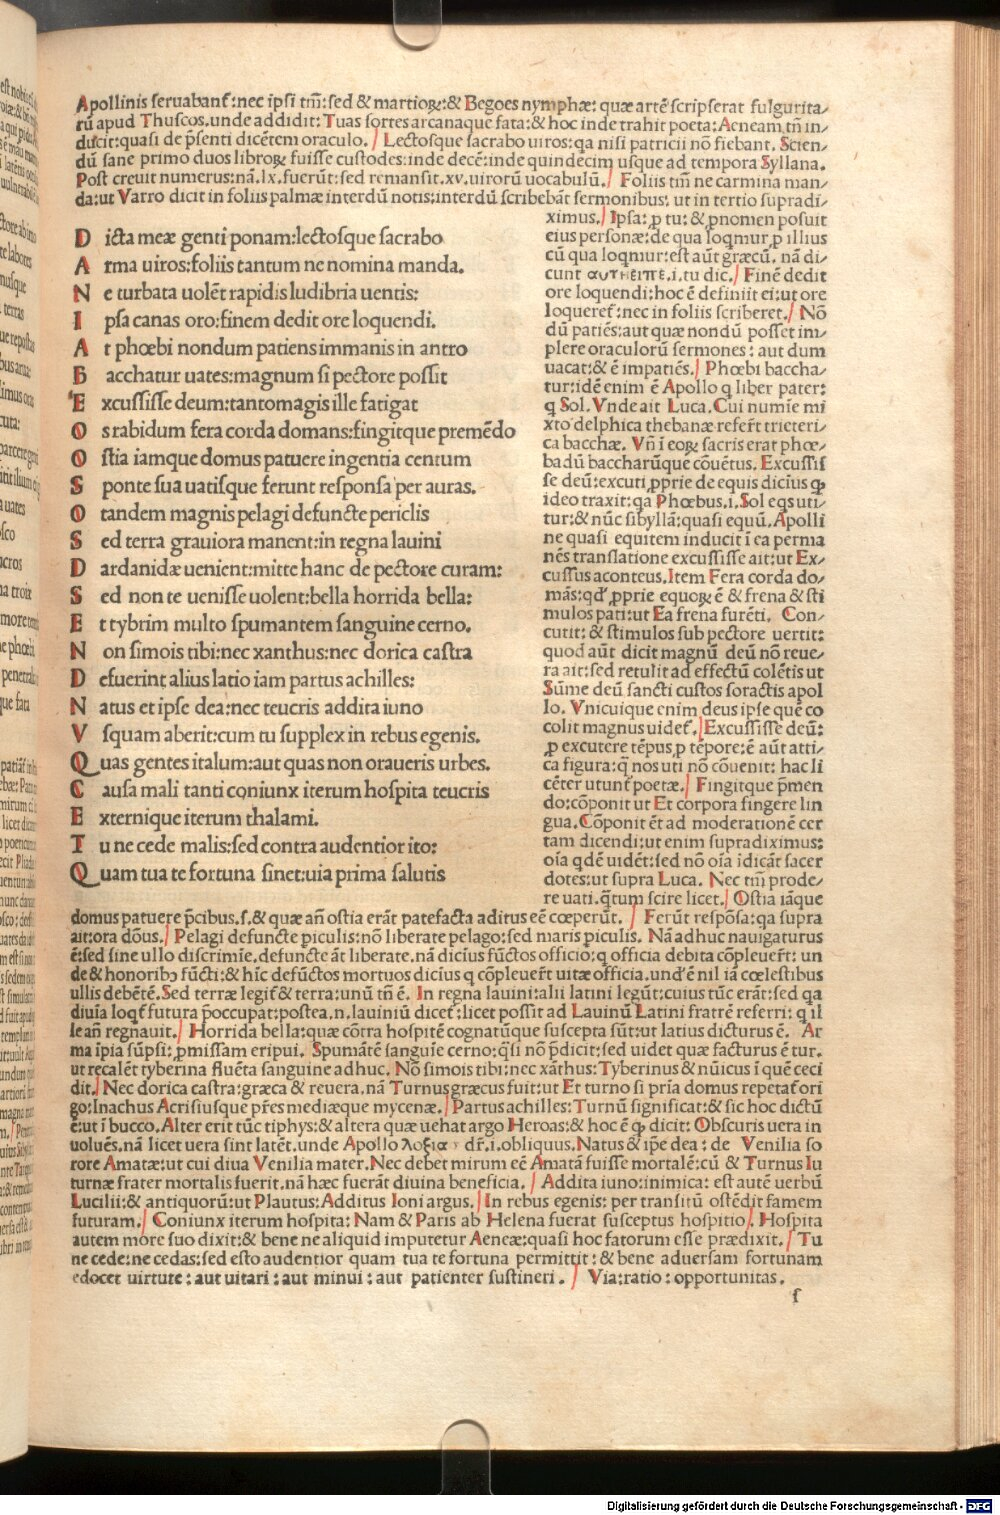 Apollinis seruabant᷑:nec ip̄si tm̄:sed & martioꝝ:& Begoes nymphæ: quæ artē scripserat fulgurita/
rū apud Thuscos.unde addidit: Tuas sortes arcanaque fata:& hoc inde trahit poeta: Aeneam tn̄ in/
ducit:quasi de p̄senti dicētem oraculo. / Lectosque sacrabo uiros:qa nisi patricii nō fiebant. Scien/
dū sane primo duos libroꝝ fuisse custodes:inde decē:inde quindecim usque ad tempora Syllana.
Post creuit numerus:nā.lx.fuerūt:sed remansit.xv.uirorū uocabulū. / Foliis tm̄ ne carmina man/
da:ut Varro dicit in foliis palmæ interdū notis:interdū scribebāt sermonibus: ut in tertio supradi/
D icta meæ genti ponam:lectosque sacrabo
A rma uiros:foliis tantum ne nomina manda.
N e turbata uolēt rapidis ludibria uentis:
I psa canas oro:finem dedit ore loquendi.
A t phœbi nondum patiens immanis in antro
B acchatur uates:magnum si pectore possit
E xcussisse deum:tantomagis ille fatigat
O s rabidum fera corda domans:fingitque premēdo
O stia iamque domus patuere ingentia centum
S ponte sua uatisque ferunt responsa per auras.
O tandem magnis pelagi defuncte periclis
S ed terra grauiora manent:in regna lauini
D ardanidæ uenient:mitte hanc de pectore curam:
S ed non te uenisse uolent:bella horrida bella:
E t tybrim multo spumantem sanguine cerno.
N on simois tibi:nec xanthus:nec dorica castra
D efuerint,alius latio iam partus achilles:
N atus et ipse dea:nec teucris addita iuno
V squam aberit:cum tu supplex in rebus egenis.
Q uas gentes italum:aut quas non oraueris urbes.
C ausa mali tanti coniunx iterum hospita teucris
E xternique iterum thalami.
T u ne cede malis:sed contra audentior ito:
Q uam tua te fortuna sinet:uia prima salutis
ximus. / Ipsa: ꝓ tu: & ꝓnomen posuit
eius personæ:de qua loqmur ꝓ illius
cū qua loqmur:est aūt græcū. nā di/
cunt αυτηειπε.i.tu dic. / Finē dedit
ore loquendi:hoc ē definiit ei:ut ore
loqueret᷑:nec in foliis scriberet. / Nō
dū patiēs:aut quæ nondū posset im/
plere oraculorū sermones: aut dum
uacat:& ē impatiēs. / Phœbi baccha/
tur:idē enim ē Apollo q liber pater:
q Sol. Vnde ait Luca. Cui numīe mi
xto delphica thebanæ refert᷑ trieteri/
ca bacchæ. Vn̄ i eoꝝ sacris erat phœ/
badū baccharūque cōuētus. Excussis
se deū:excuti ꝓprie de equis dicīus ꝙ
ideo traxit:qa Phœbus.i.Sol eqs uti/
tur:& nūc sibyllā:quasi equū.Apolli
ne quasi equitem inducit i ea perma
nēs translatione excussisse ait:ut Ex/
cussus aconteus.Item Fera corda do/
mās:qd᷑ ꝓprie equoꝝ ē & frena & sti
mulos pati:ut Ea frena furēti. Con/
cutit: & stimulos sub pectore uertit:
quod aūt dicit magnū deū nō reue/
ra ait:sed retulit ad effectū colētis ut
Sūme deū sancti custos soractis apol
lo. Vnicuique enim deus ipse quē co
colit magnus uidet᷑. / Excussisse deū:
ꝓ excutere tēpus ꝓ tēpore:ē aūt atti/
ca figura:q̄ nos uti nō cōuenit: hac li
cēter utunt᷑ poetæ. / Fingitque p̄men
do:cōponit ut Et corpora fingere lin
gua.Cōponit ēt ad moderationē cer
tam dicendi:ut enim supradiximus:
oīa qdē uidēt:sed nō oīa idicāt sacer
dotes:ut supra Luca. Nec tm̄ prode/
re uati.q̄tum scire licet. / Ostia iāque
domus patuere p̄cibus.s.& quæ an̄ ostia erāt patefacta aditus eē cœperūt. / Ferūt respōsa:qa supra
ait:ora dōus. / Pelagi defuncte piculis:nō liberate pelago:sed maris piculis. Nā adhuc nauigaturus
ē:sed sine ullo discrimīe.defuncte āt liberate.nā dicīus fūctos officio: q officia debita cōpleuert᷑: un
de & honoribꝫ fūcti:& hīc defūctos mortuos dicīus q cōpleuert᷑ uitæ officia.und᷑ ē nil iā cœlestibus
ullis debētē.Sed terræ legit᷑ & terra:unū tn̄ ē. In regna lauini:alii latini legūt:cuius tūc erāt:sed qa
diuīa loqt᷑ futura p̄occupat:postea.n.lauiniū dicet᷑:licet possit ad Lauinū Latini fratrē referri: q il
le an̄ regnauit. / Horrida bella:quæ cōtra hospitē cognatūque suscepta sūt:ut latius dicturus ē. Ar
ma īpia sūpsi: ꝓmissam eripui. Spumātē sanguīe cerno:q̄si nō p̄dicit:sed uidet quæ facturus ē tur.
ut recalēt tyberina fluēta sanguine adhuc. Nō simois tibi:nec xāthus:Tyberinus & nūicus ī quē ceci
dit. / Nec dorica castra:græca & reuera.nā Turnus græcus fuit:ut Et turno si prīa domus repetat᷑ ori
go:Inachus Acrisiusque p̄res mediæque mycenæ. / Partus achilles: Turnū significat:& sic hoc dictū
ē:ut ī bucco.Alter erit tūc tiphys:& altera quæ uehat argo Heroas:& hoc ē ꝙ dicit: Obscuris uera in
uoluēs.nā licet uera sint latēt.unde Apollo λοξιας dr᷑.i.obliquus.Natus & ip̄e dea: de Venilia so
rore Amatæ:ut cui diua Venilia mater.Nec debet mirum eē Amatā fuisse mortalē:cū & Turnus Iu
turnæ frater mortalis fuerit.nā hæc fuerāt diuina beneficia. / Addita iuno:inimica: est autē uerbū
Lucilii:& antiquorū:ut Plautus:Additus Ioni argus. / In rebus egenis: per transitū ostēdit famem
futuram. / Coniunx iterum hospita: Nam & Paris ab Helena fuerat susceptus hospitio / . Hospita
autem more suo dixit:& bene ne aliquid imputetur Aeneæ:quasi hoc fatorum esse prædixit. / Tu
ne cede:ne cedas:sed esto audentior quam tua te fortuna permittit: & bene aduersam fortunam
edocet uirtute: aut uitari: aut minui: aut patienter sustineri. / Via:ratio: opportunitas.
f
Digitalisierung gefördert durch die Deutsche Forschungsgemeinschaft - DFG